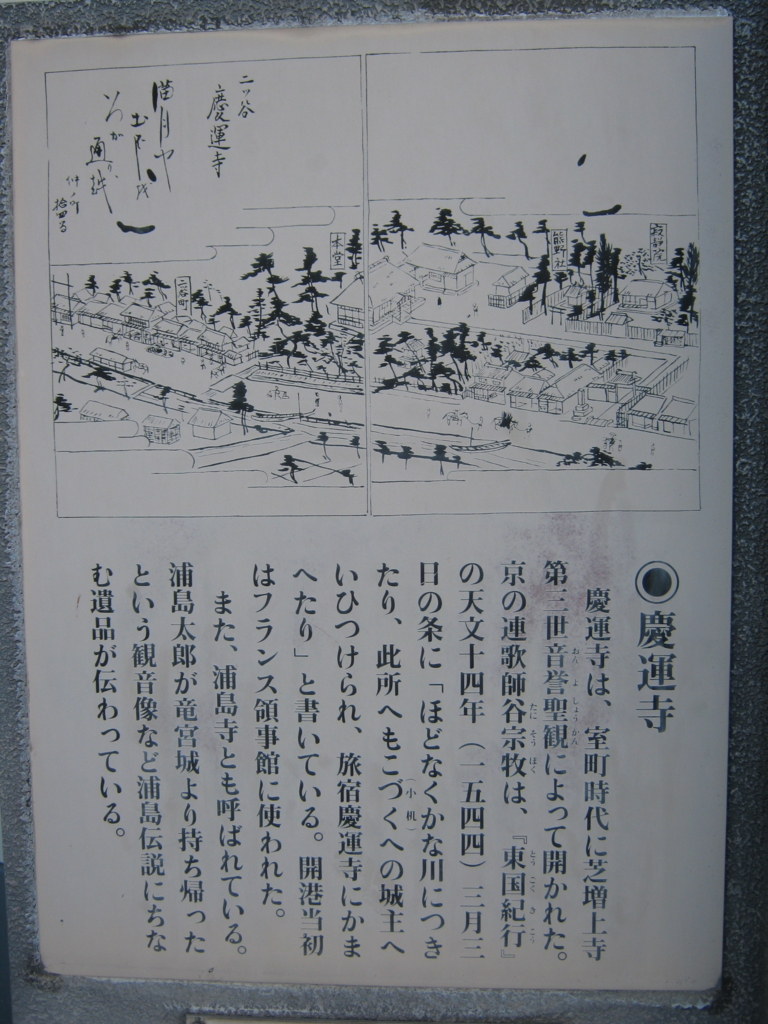 二ッ谷
慶運寺
満月や
通り越
仲町
本堂
二ッ谷町
熊野社
◉慶運寺
慶運寺は、室町時代に芝増上寺
第三世音誉聖観によって開かれた。
おんよしょうかん
京の連歌師谷宗牧は、『東国紀行』
たにそうぼく
とうごくきこう
の天文十四年（一五四四）三月三
日の条に「ほどなくかな川につき
たり、此所へもこづくへの城主へ
（小机）
いひつけられ、旅宿慶運寺にかま
へたり」と書いている。開港当初
はフランス領事館に使われた。
また、浦島寺とも呼ばれている。
浦島太郎が竜宮城より持ち帰った
という観音像など浦島伝説にちな
む遺品が伝わっている。